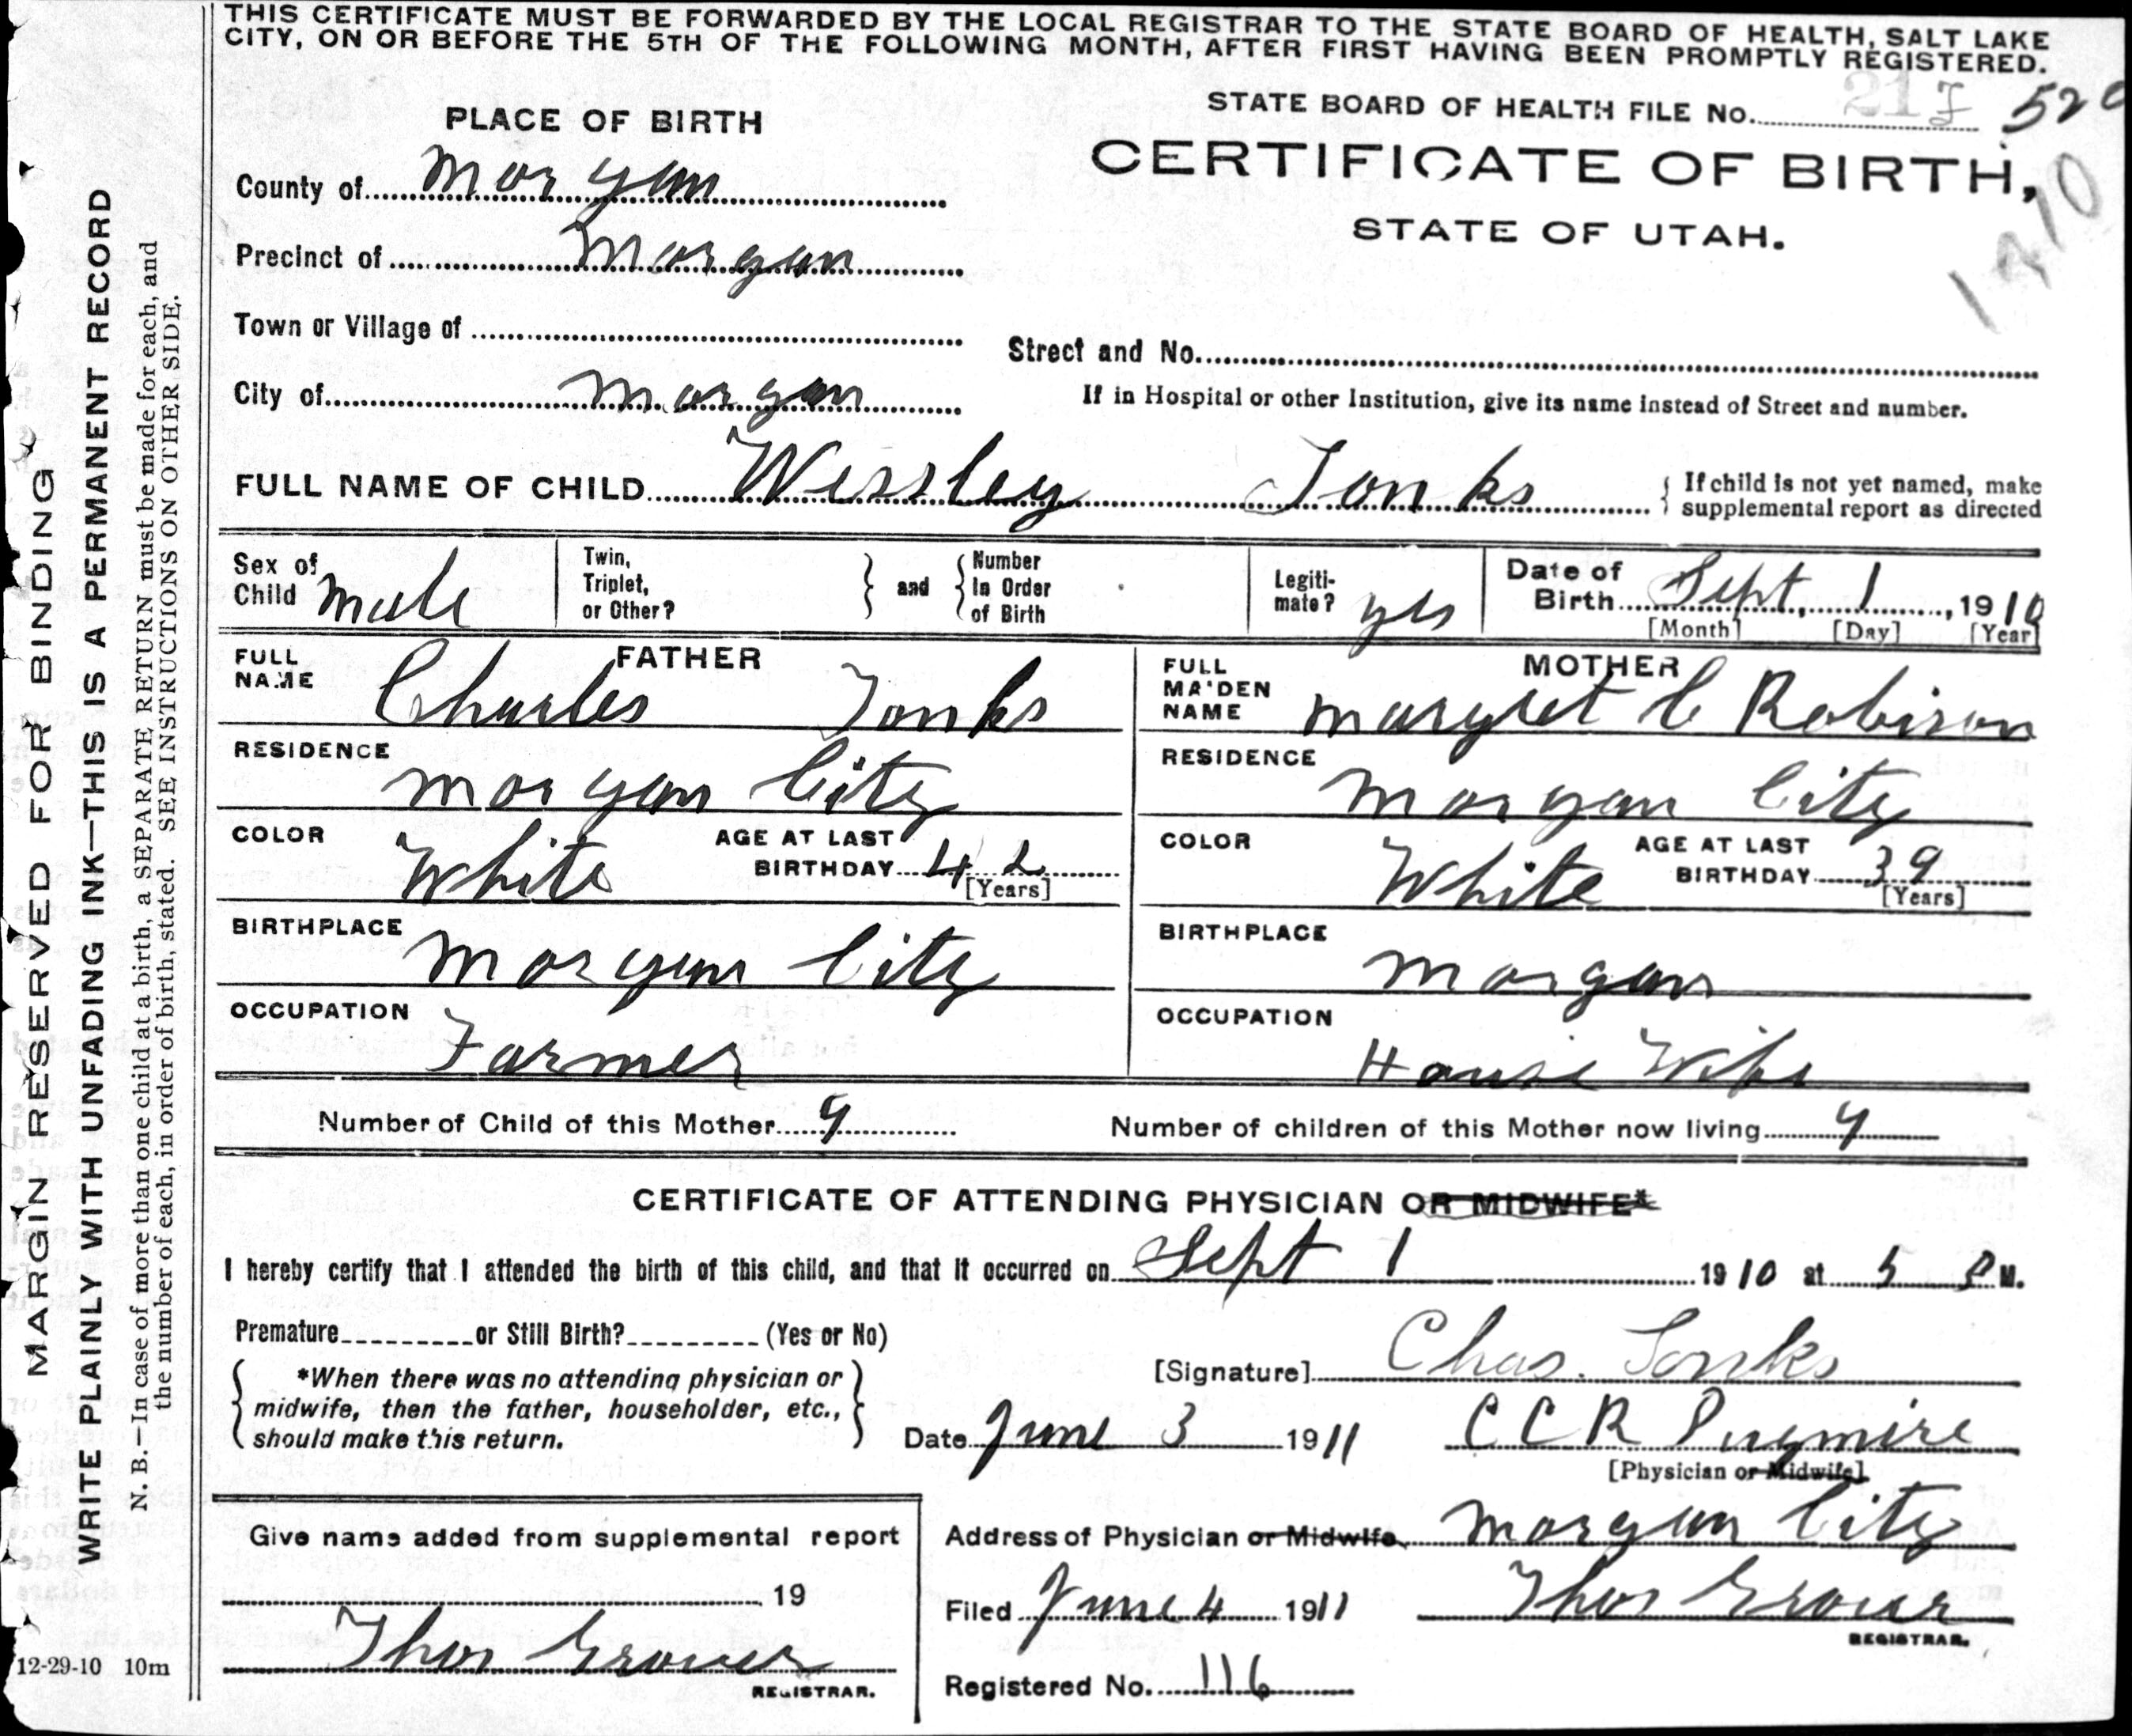 THIS CERTIFICATE MUST BE FORWARDED BY THE LOCAL REGISTRAR TO THE STATE BOARD OF HEALTH, SALT LAKE
CITY, ON OR BEFORE THE 5TH OF THE FOLLOWING MONTH, AFTER FIRST HAVING BEEN PROMPTLY REGISTERED.
STATE BOARD OF HEALTH FILE No. 217 520
CERTIFICATE OF BIRTH,
STATE OF UTAH.
1910
PLACE OF BIRTH
County of Morgan
Precinct of Morgan
Town or Village of
Street and No.
City of Morgan
If in Hospital or other Institution, give its name instead of Street and number.
FULL NAME OF CHILD Wessley Tonks
If child is not yet named, make
supplemental report as directed
Sex of Child Male
Twin, Triplet, or Other?
and
Number In Order of Birth
Legiti-mate? yes
Date of Birth Sept, 1, 1910
[Month] [Day] [Year]
FATHER
FULL NAME Charles Tonks
RESIDENCE Morgan City
COLOR White AGE AT LAST BIRTHDAY 42 [Years]
BIRTHPLACE Morgan City
OCCUPATION Farmer
MOTHER
FULL MAIDEN NAME Margret C Robison
RESIDENCE Morgan City
COLOR White AGE AT LAST BIRTHDAY 39 [Years]
BIRTHPLACE Morgan
OCCUPATION House Wife
Number of Child of this Mother 9
Number of children of this Mother now living 9
CERTIFICATE OF ATTENDING PHYSICIAN OR MIDWIFE*
I hereby certify that I attended the birth of this child, and that it occurred on Sept 1 1910 at 5 P M.
Premature or Still Birth? (Yes or No)
*When there was no attending physician or
midwife, then the father, householder, etc.,
should make this return.
[Signature] Chas. Tonks
Date June 3 1911 C C R Pugmire
[Physician or Midwife]
Address of Physician or Midwife Morgan City
Give name added from supplemental report
19
Thos Grover
REGISTRAR.
Filed June 4 1911 Thos Grover
REGISTRAR.
Registered No. 116
MARGIN RESERVED FOR BINDING
WRITE PLAINLY WITH UNFADING INK—THIS IS A PERMANENT RECORD
N. B.—In case of more than one child at a birth, a SEPARATE RETURN must be made for each, and
the number of each, in order of birth, stated. SEE INSTRUCTIONS ON OTHER SIDE.
12-29-10 10m